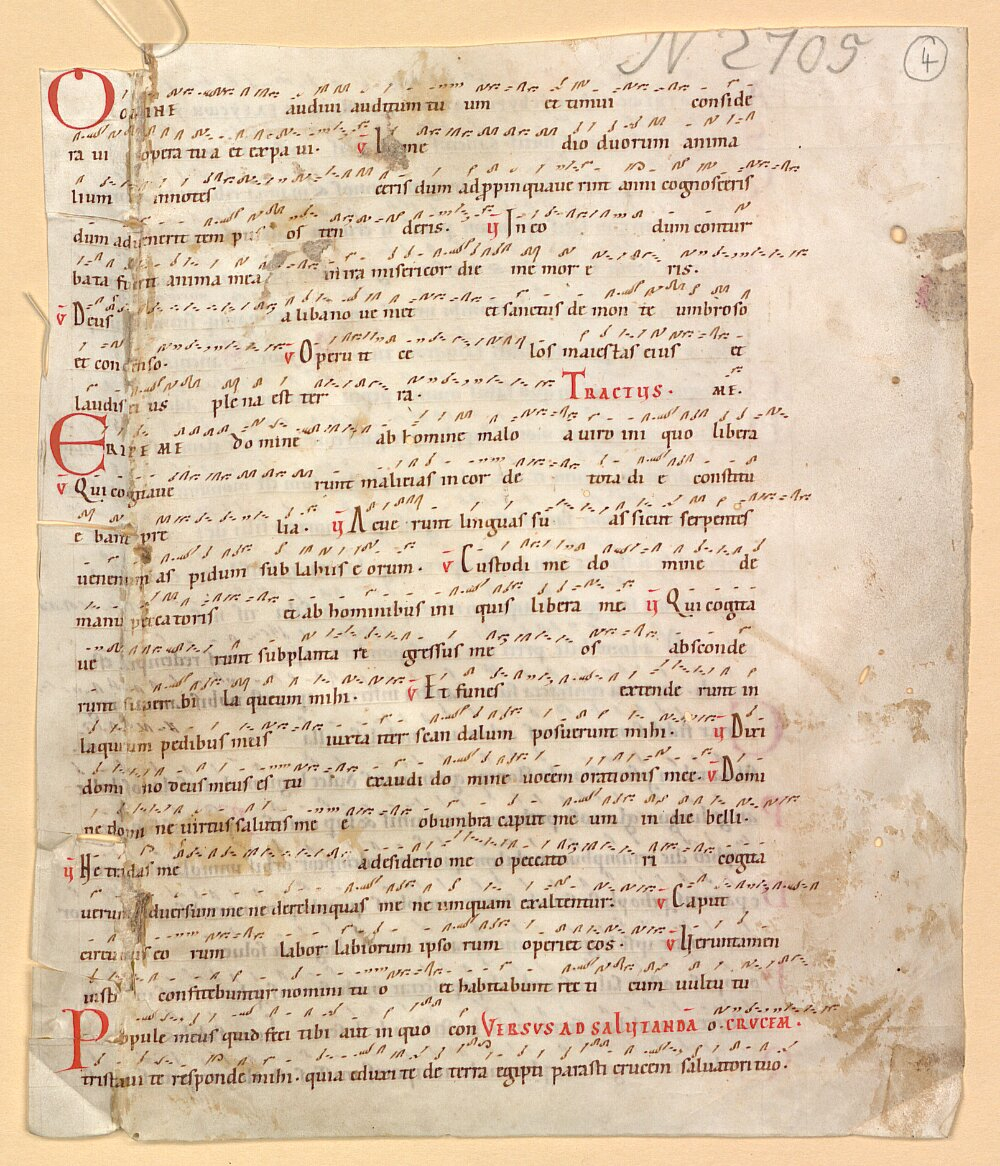 N 2705 4
DOMINE audivi auditum tu um et timui conside
ra vi opera tua et expa vi. v In me dio duorum animа
lium innotes ceris dum adppinquave rint anni cognosceris
dum advenerit tem pus os ten deris. v In eo dum contur
bata fuerit anima mea in ira misericor die me mor e ris.
v Deus a libano ve niet et sanctus de mon te umbroso
et condenso. v Operu it ce los maiestas eius et
laudis ei us ple na est ter ra. TRACTUS. ME.
ERIPE ME do mine ab homine malo a viro ini quo libera
v Qui cogitave runt malicias in cor de tota di e constitu
e bant pre lia. v Acue runt linguas su as sicut serpentes
venenum as pidum sub labiis e orum. v Custodi me do mine de
manu peccatoris et ab hominibus ini quis libera me. v Qui cogita
ve runt subplanta re gressus me os absconde
runt superi bi la queum mihi. v Et funes extende runt in
laqueum pedibus meis iuxta iter scan dalum posuerunt mihi. v Dixi
domi no deus meus es tu exaudi do mine vocem orationis mee. v Domi
ne domi ne virtus salutis me e obumbra caput me um in die belli.
v Ne tradas me a desiderio me o peccato ri cogita
verunt adversum me ne derelinquas me ne umquam exaltentur. v Caput
circuitus eo rum labor labiorum ipso rum operiet eos. v Veruntamen
iusti confitebuntur nomini tu o et habitabunt rec ti cum vultu tu
Popule meus quid feci tibi aut in quo con VERSUS AD SALUTANDĀ o. CRUCEM.
tristavi te responde mihi. quia eduxi te de terra egipti parasti crucem salvatori tuo.